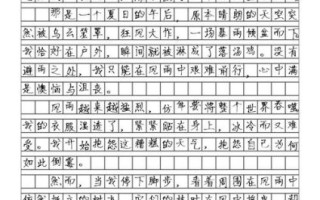 那是一个夏日的午后，原本晴朗的天空突
然被乌云笼罩，狂风大作，一场暴雨倾盆而下
我恰好在户外，瞬间就被淋成了落汤鸡。没有
避雨之处，我只能在风雨中艰难前行，心中满
是懊恼与沮丧。
风雨越来越猛烈，仿佛要将整个世界吞噬
我的衣服湿透了，紧紧贴在身上，冰冷而又难
受。我开始抱怨这糟糕的天气，抱怨自己为何
如此倒霉。
然而，当我停下脚步，看着周围在风雨中